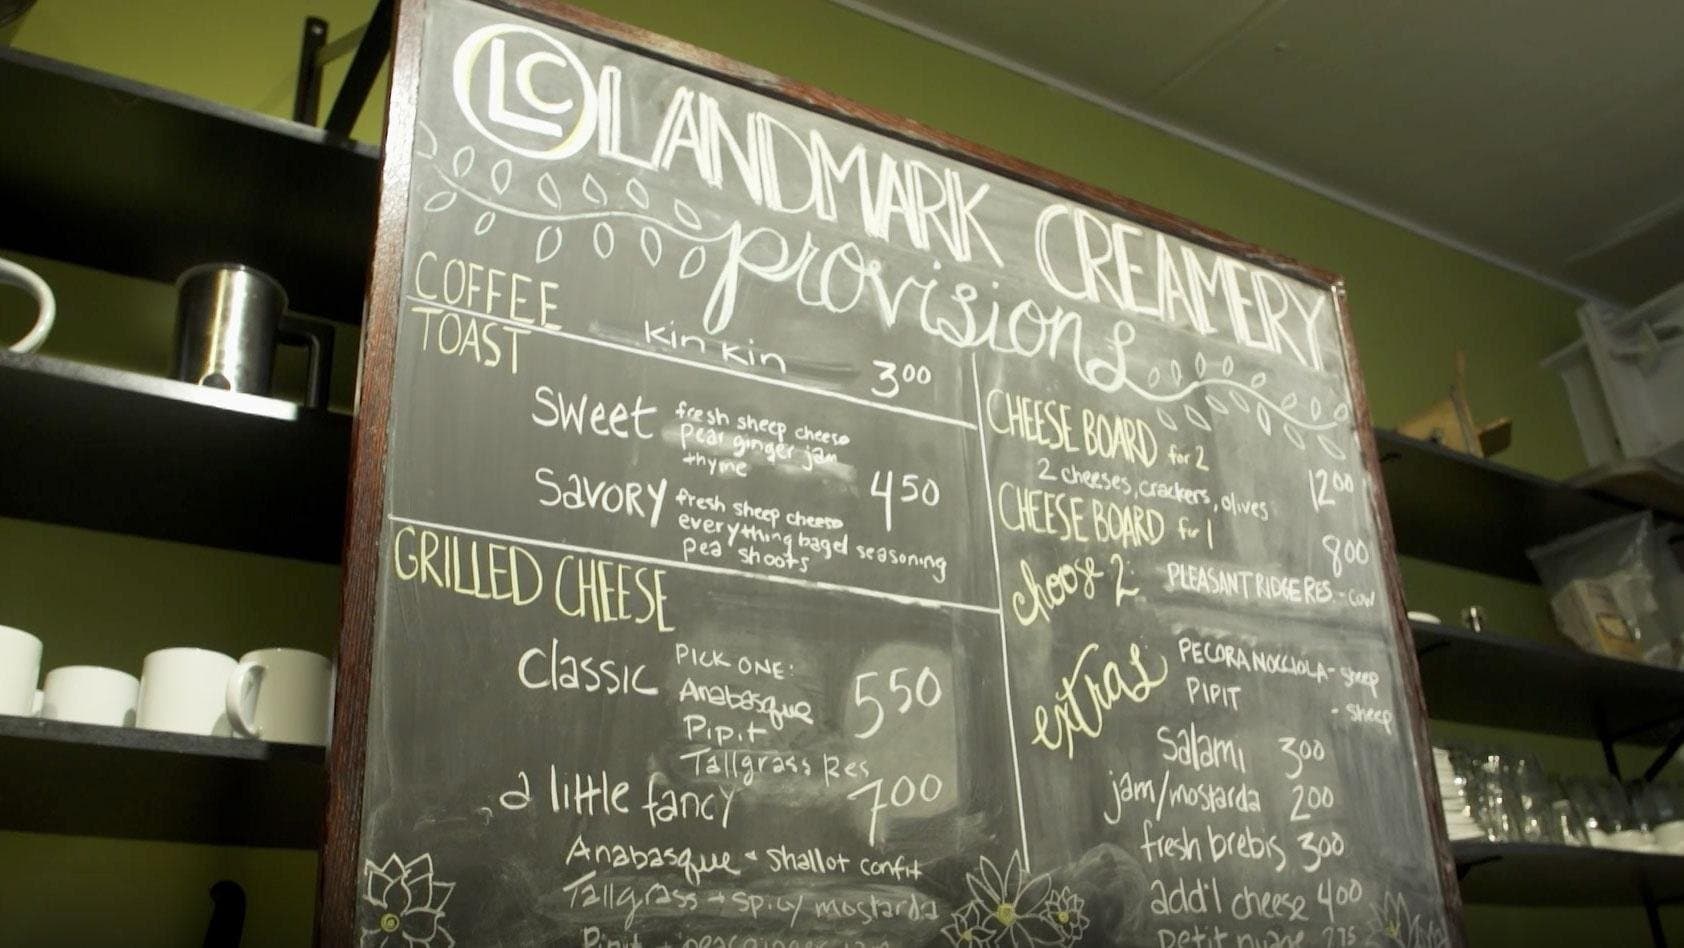 LC LANDMARK CREAMERY
provisions
COFFEE
kin kin 3.00
TOAST
Sweet fresh sheep cheese
pear ginger jam
thyme
4.50
Savory fresh sheep cheese
everything bagel seasoning
pea shoots
GRILLED CHEESE
Classic PICK ONE: 5.50
Anabasque
Pipit
Tallgrass Res
a little fancy 7.00
Anabasque + shallot confit
Tallgrass + spicy mostarda
Pipit + pear ginger jam
CHEESE BOARD for 2
2 cheeses, crackers, olives 12.00
CHEESE BOARD for 1
8.00
choose 2: PLEASANT RIDGE RES. - cow
PECORA NOCCIOLA - sheep
PIPIT - sheep
extras
Salami 3.00
jam/mostarda 2.00
fresh brebis 3.00
add'l cheese 4.00
petit nuage 2.75